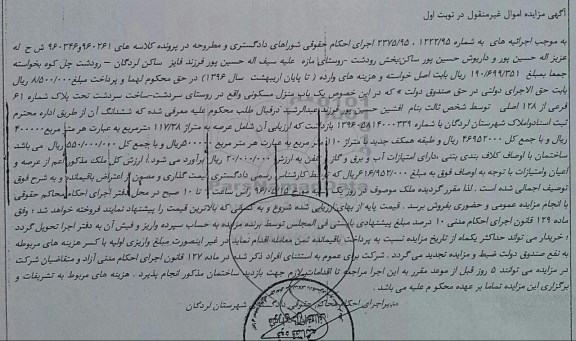 آگهی مزایده اموال غیرمنقول در نوبت اول
به موجب اجرائیه های به شماره ۱۲۲۲/۹۵ ، ۲۳۷۵/۹۵ اجرای احکام حقوقی شوراهای دادگستری و مطروحه در پرونده کلاسه های ۹۶۰۲۶۱و۹۶۰۳۴۶ ش ح له
عزیز حسین پور و داریوش حسین پور ساکن بخش رودشت -روستای مازه علیه سیف اله حسین پور فرزند فایز ساکن لردگان – رودشت چل کوه بخواسته
جمعا بمبلغ ۱۹۰/۶۹۹/۳۵۱ ریال بابت اصل خواسته و هزینه های وارده ( تا پایان اردیبهشت سال ۱۳۹۶) در حق محکوم لهما و پرداخت مبلغ ۸/۵۰۰/۰۰۰ ریال
بابت حق الاجرای دولتی در حق صندوق دولت » که در این خصوص یک باب منزل مسکونی واقع در روستای سردشت-ساخت سردشت تحت پلاک شماره ۶۱
فرعی از ۱۲۸ اصلی توسط شخص ثالث بنام افشین حسین پور فرزند عبدالرشید درقبال طلب محکوم علیه معرفی شده که ششدانگ آن از طریق اداره محترم
ثبت اسنادواملاک شهرستان لردگان با شماره ۱۳۹۶۰۵۸۱۴۰۰۰۳۳۹ بازداشت که ارزیابی آن شامل عرصه به متراژ ۱۱۷/۳۸ مترمربع به عبارت هر متر مربع ۴۰۰۰۰۰
ریال و با جمع کل ۴۶۹۵۲۰۰۰ ریال و طبقه همکف جدید با متراژ ۱۱۰ متر مربع به عبارت هر متر مربع ۵۰۰۰۰۰۰ ریال و با جمع کل ۵۵۰/۰۰۰/۰۰۰ ریال می باشد
ساختمان با اوصاف کلاف بندی بتنی دارای امتیازات آب و برق و گاز و تلفن به ارزش ۲۰/۰۰۰/۰۰۰ ریال برآورد می شود. ارزش کل ملک مذکور اعم از عرصه و
اعیان وامتیازات با توجه به اوصاف فوق به مبلغ ۶۱۶/۹۵۲/۰۰۰ ریال که توسط کارشناس رسمی دادگستری قیمت گذاری و مصون از اعتراض باقیمانده و به شرح فوق
توصیف اجمالی شده است . لذا مقرر گردیده ملک موصوف در تاریخ ۹۶/۵/۱۵ از ساعت ۹ تا ۱۰ صبح در محل دفتر اجرای احکام محاکم حقوقی
با انجام مزایده عمومی و حضوری بفروش برسد . قیمت پایه از بهای ارزیابی شده شروع و به کسانی که بالاترین قیمت را پیشنهاد نمایند فروخته خواهد شد ؛ وفق
ماده ۱۲۹ قانون اجرای احکام مدنی ۱۰ درصد مبلغ پیشنهادی بایستی فی المجلس توسط برنده مزایده به حساب سپرده واریز و فیش آن به دفتر اجرا تحویل گردد
؛ خریدار می تواند حداکثر یکماه از تاریخ مزایده نسبت به پرداخت باقیمانده ثمن معامله اقدام نماید در غیر اینصورت مبلغ واریزی اولیه با کسر هزینه های مربوطه
به نفع صندوق دولت ضبط و مزایده تجدید می گردد . شرکت برای عموم به استثنای افراد ذکر شده در ماده ۱۲۷ قانون اجرای احکام مدنی آزاد و متقاضیان شرکت
در مزایده می توانند ۵ روز قبل از موعد مقرر به این اجرا مراجعه تا اقدامات لازم جهت بازدید ساختمان مذکور انجام پذیرد . هزینه های مربوط به تشریفات و
برگزاری این مزایده تماما بر عهده محکوم علیه می باشد .
مدیراجرای احکام محاکم حقوقی دادگستری شهرستان لردگان